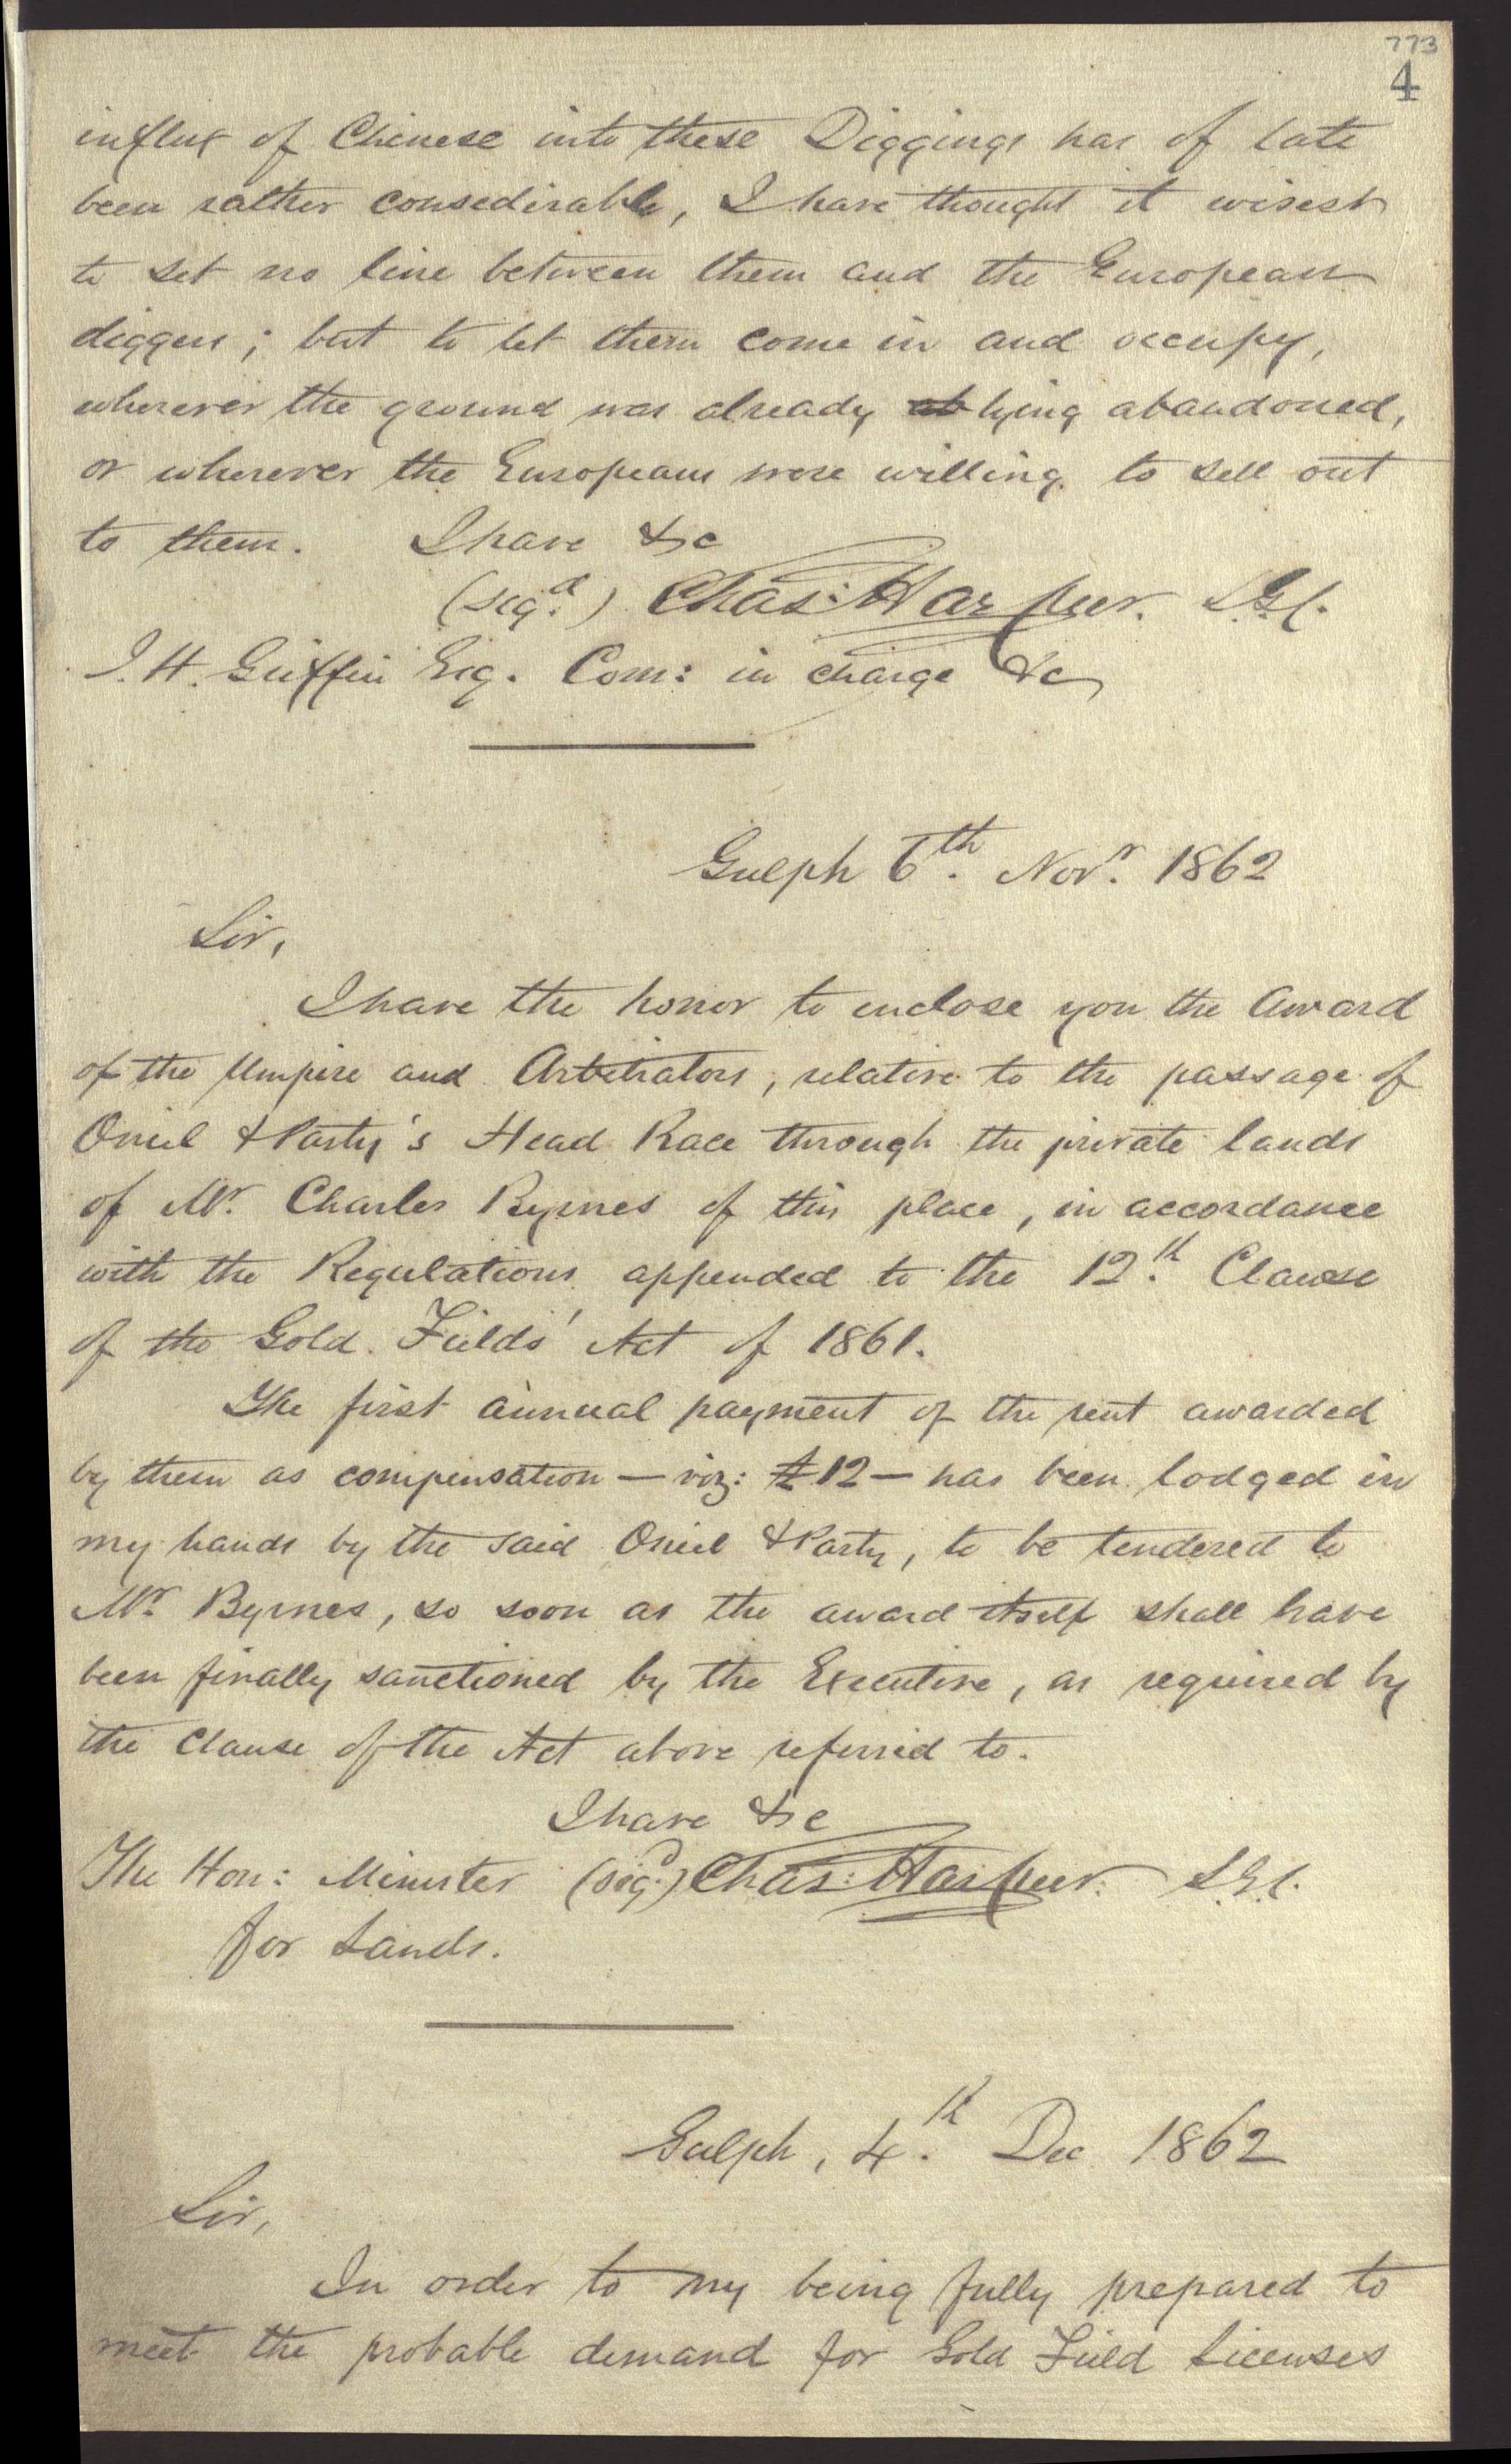 773
4
influx of Chinese into these Diggings has of late
been rather consedirable, I have thought it wisest
to set no line between them and the European
diggers; but to let them come in and occupy,
wherever the ground was already ab lying abandoned,
or wherever the Europeans were willing to sell out
to them. I have &c
(sigd.) Chas: Harpur.
J. H. Griffin Esq. Com: in charge &c
Gulph 6th. Novr. 1862
Sir,
I have the honor to enclose you the award
of the Umpire and Arbitrators, relative to the passage of
Oniel & Party's Head Race through the private lands
of Mr. Charles Byrnes of this place, in accordance
with the Regulations appended to the 12th. Clause
of the Gold Fields' Act of 1861.
The first annual payment of the rent awarded
by them as compensation — viz: £12 — has been lodged in
my hands by the said Oniel & Party, to be tendered to
Mr. Byrnes, so soon as the award itself shall have
been finally sanctioned by the Executive, as required by
the Clause of the Act above referred to.
I have &c
The Hon: Minister (sigd.) Chas: Harpur.
for Lands.
Gulph, 4th. Dec 1862
Sir,
In order to my being fully prepared to
meet the probable demand for Gold Field Licenses